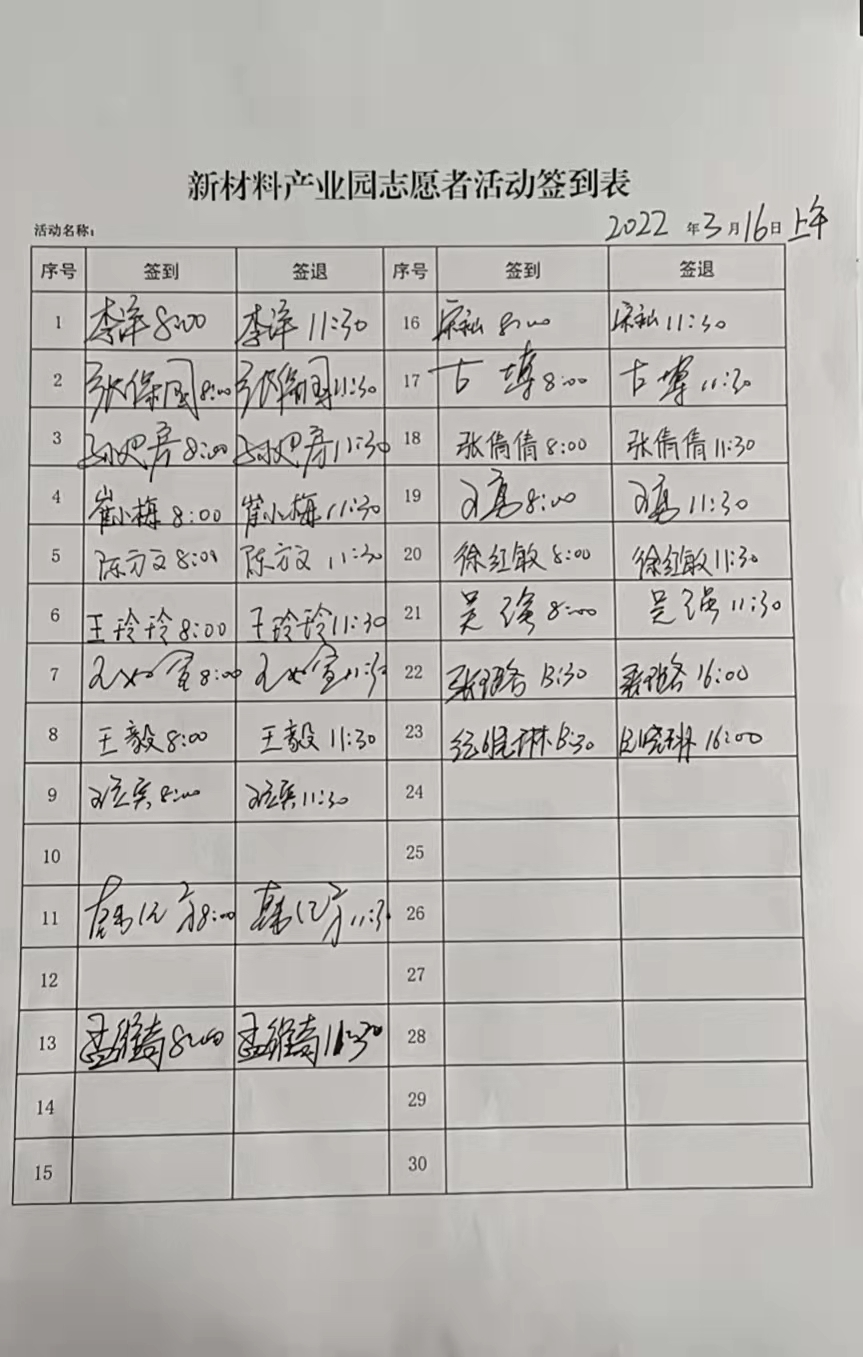 新材料产业园志愿者活动签到表
活动名称: 2022 年 3 月 16 日 上午
序号 签到 签退 序号 签到 签退
1 李洋 8:00 李洋 11:30 16 8:00 11:30
2 张保国 8:00 张保国 11:30 17 古博 8:00 古博 11:30
3 8:00 11:30 18 张倩倩 8:00 张倩倩 11:30
4 崔小梅 8:00 崔小梅 11:30 19 8:00 11:30
5 陈方文 8:00 陈方文 11:30 20 徐红敏 8:00 徐红敏 11:30
6 王玲玲 8:00 王玲玲 11:30 21 吴强 8:00 吴强 11:30
7 8:00 11:30 22 13:30 16:00
8 王毅 8:00 王毅 11:30 23 13:30 16:00
9 8:00 11:30 24
10 25
11 8:00 11:30 26
12 27
13 8:00 11:30 28
14 29
15 30